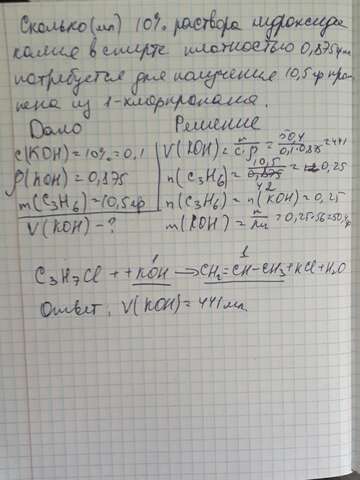 Сколько (мл) 10% раствора гидроксида
калия в спирте плотностью 0,875 г/мл
потребуется для получения 10,5 гр про
пена из 1-хлорпропана.
Дано
Решение
c(KOH)=10%=0,1
ρ(KOH)=0,875
m(C3H6)=10,5гр
V(KOH)-?
V(KOH)= = 50,4/0,1·0,875 =441
n(C3H6)= 10,5/42 = 0,25
n(C3H6)=n(KOH)=0,25
m(KOH)= =0,25·56=50,4
C3H7Cl + +KOH → CH2=CH-CH3+KCl+H2O
1 1
Ответ: V(KOH)=441мл.